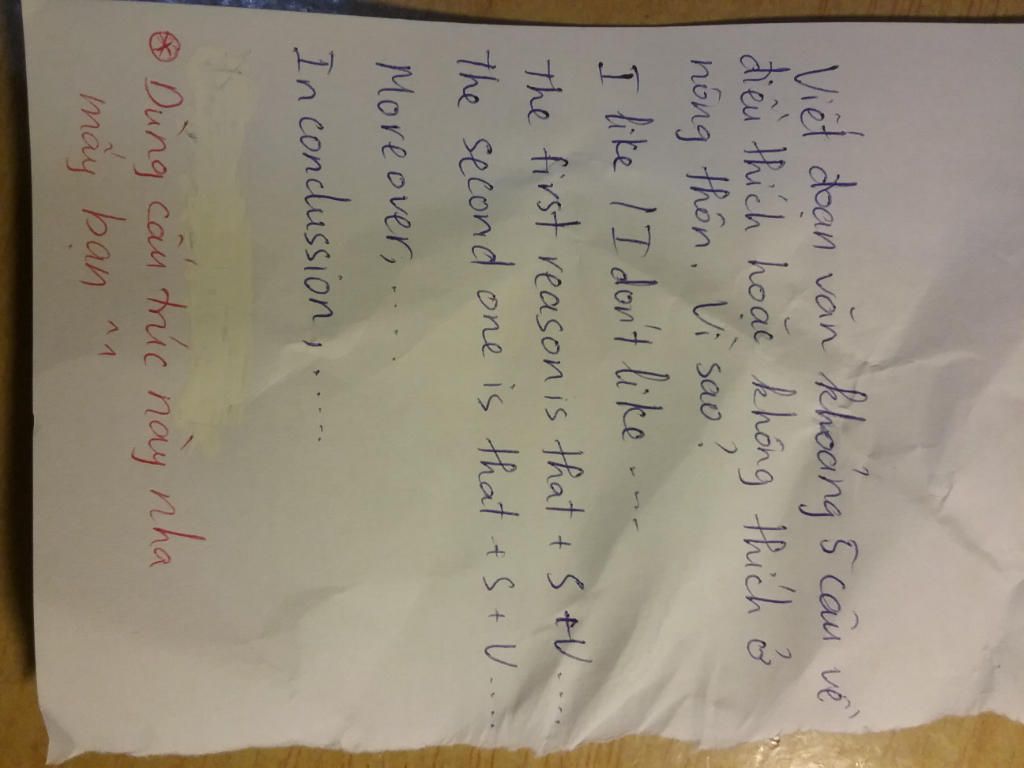 Viết đoạn văn khoảng 5 câu về
điều thích hoặc không thích ở
nông thôn. Vì sao?
I like / I don't like ....
the first reason is that + S + V .....
the second one is that + S + V .....
More over, .....
In conclussion, .....
* Dùng cấu trúc này nha
mấy bạn ^^